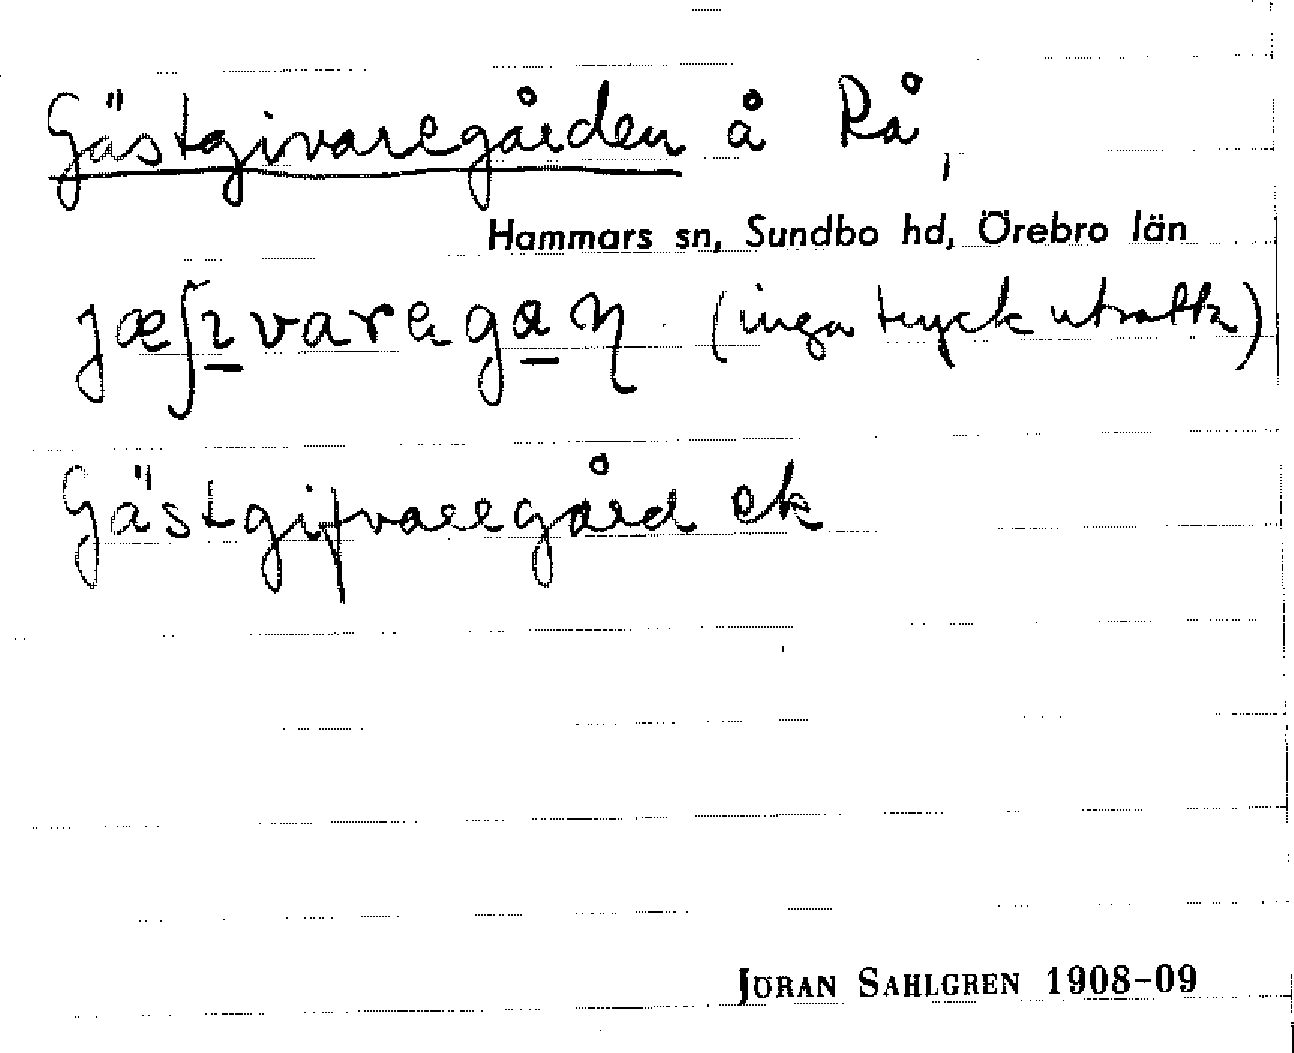 Gästgivaregården å Rå,
Hammars sn, Sundbo hd, Örebro län
jæʃɩvaregaɳ (inga tryck utsatta)
Gästgifvaregård ek
JÖRAN SAHLGREN 1908-09